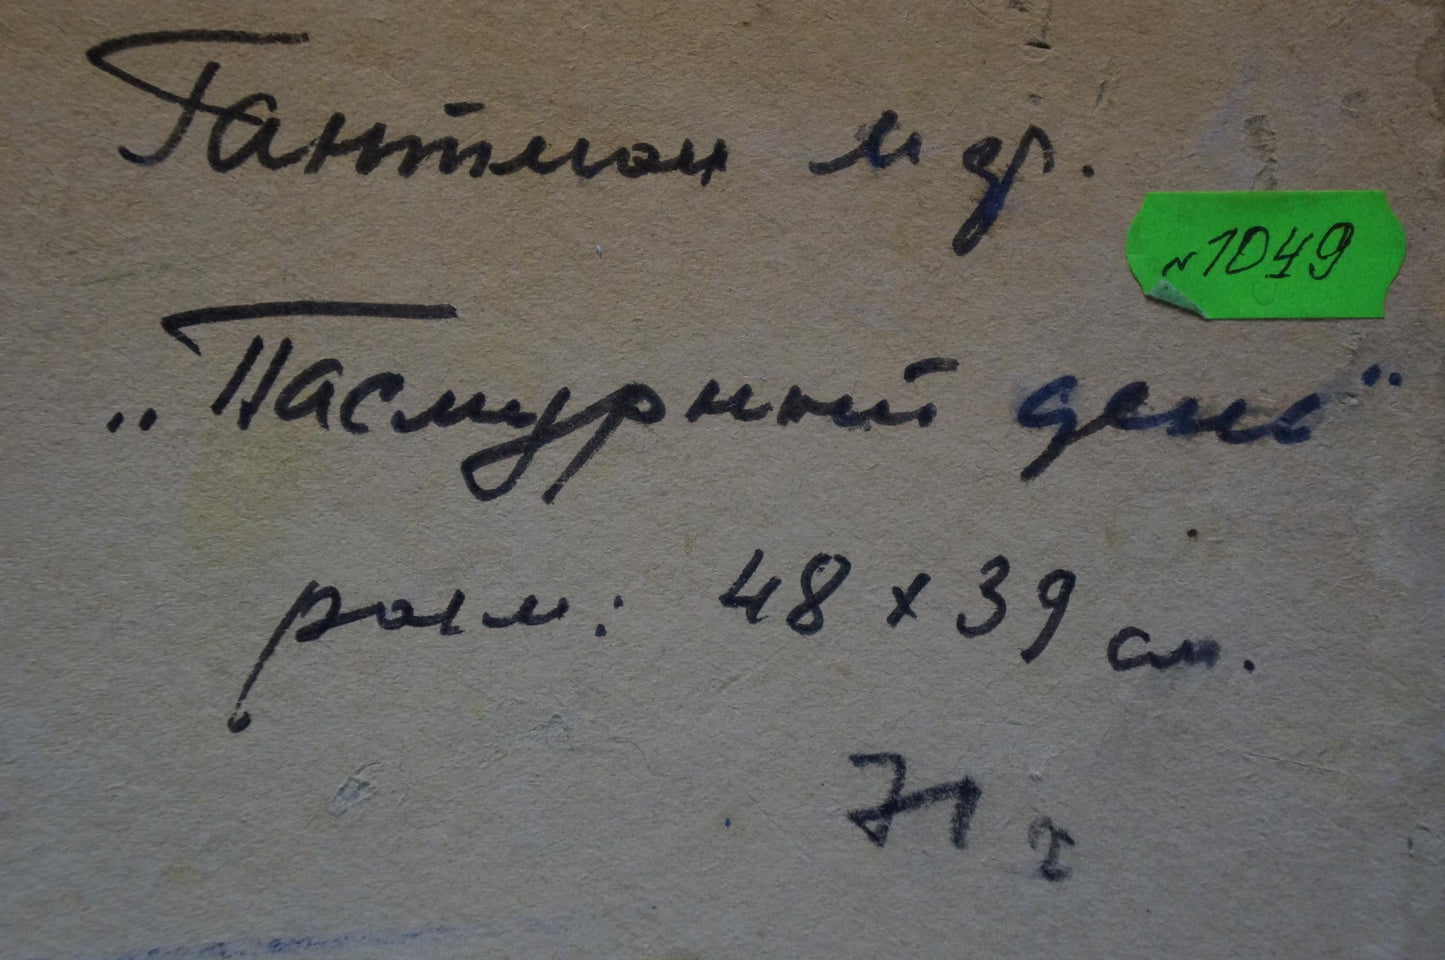 Гантман М др.
№1049
„Пасмурный день"
разм: 48 x 39 см.
71 г